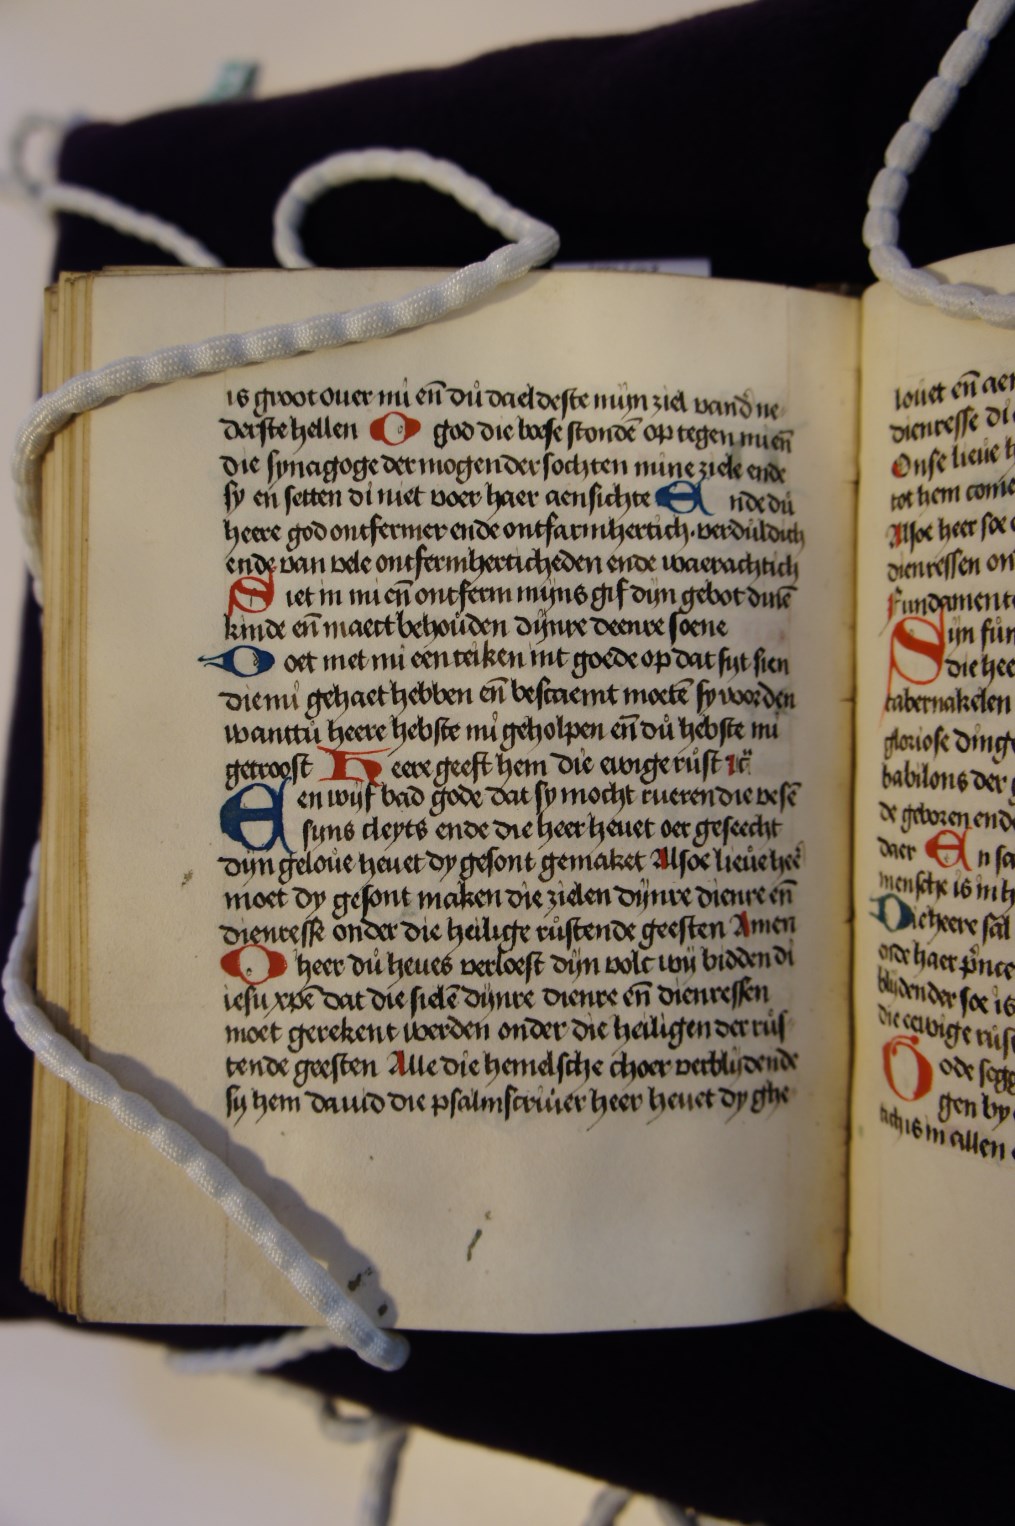 is groot ouer mi en̄ du̇ daeldeste mijn ziel vand ne
derste hellen O god die boese stondē op tegen mi en̄
die synagoge der mogender sochten mine ziele ende
sy en setten di niet voer haer aensichte E nde du̇
heere god ontfermer ende ontfarmhertich. verdu̇ldich
ende van vele ontfermherticheden ende waerachtich
S iet in mi en̄ ontferm mijns gif dijn gebot dinē
kinde en̄ maect behou̇den dijnre deenre soene
D oet met mi een teiken int goede op dat sijt sien
die mi gehaet hebben en̄ bescaemt moetē sy worden
wanttu̇ heere hebste mi geholpen en̄ du̇ hebste mi
getroost H eere geeft hem die ewige ru̇st ꝛc̄
E en wijf bad gode dat sy mocht rueren die vesē
sijns cleyts ende die heer heuet oer geseecht
dijn gelou̇e heuet dy gesont gemaket Alsoe lieu̇e heē
moet dy gesont maken die zielen dijnre dienre en̄
dienresse onder die heilige ru̇stende geesten Amen
O heer du̇ heues verloest dijn volc wij bidden di
iesu xpē dat die sielē dijnre dienre en̄ dienressen
moet gerekent werden onder die heiligen der ru̇s
tende geesten Alle die hemelsche choer verblijdende
sij hem dauid die psalmscriu̇er heer heuet dy ghe
louet en̄ aen
dienresse di
Onse lieue h
tot hem come
Alsoe heer soe
dienressen on
fundamente
S ijn fun
die hee
tabernakelen
gloriose ding
babilons der g
de geboren ende
daer E n sa
mensche is in h
D ie heere sal
onde haer p̄nce
blijdender soe is
die eewige ru̇s
G ode segg
gen by
lich is in allen